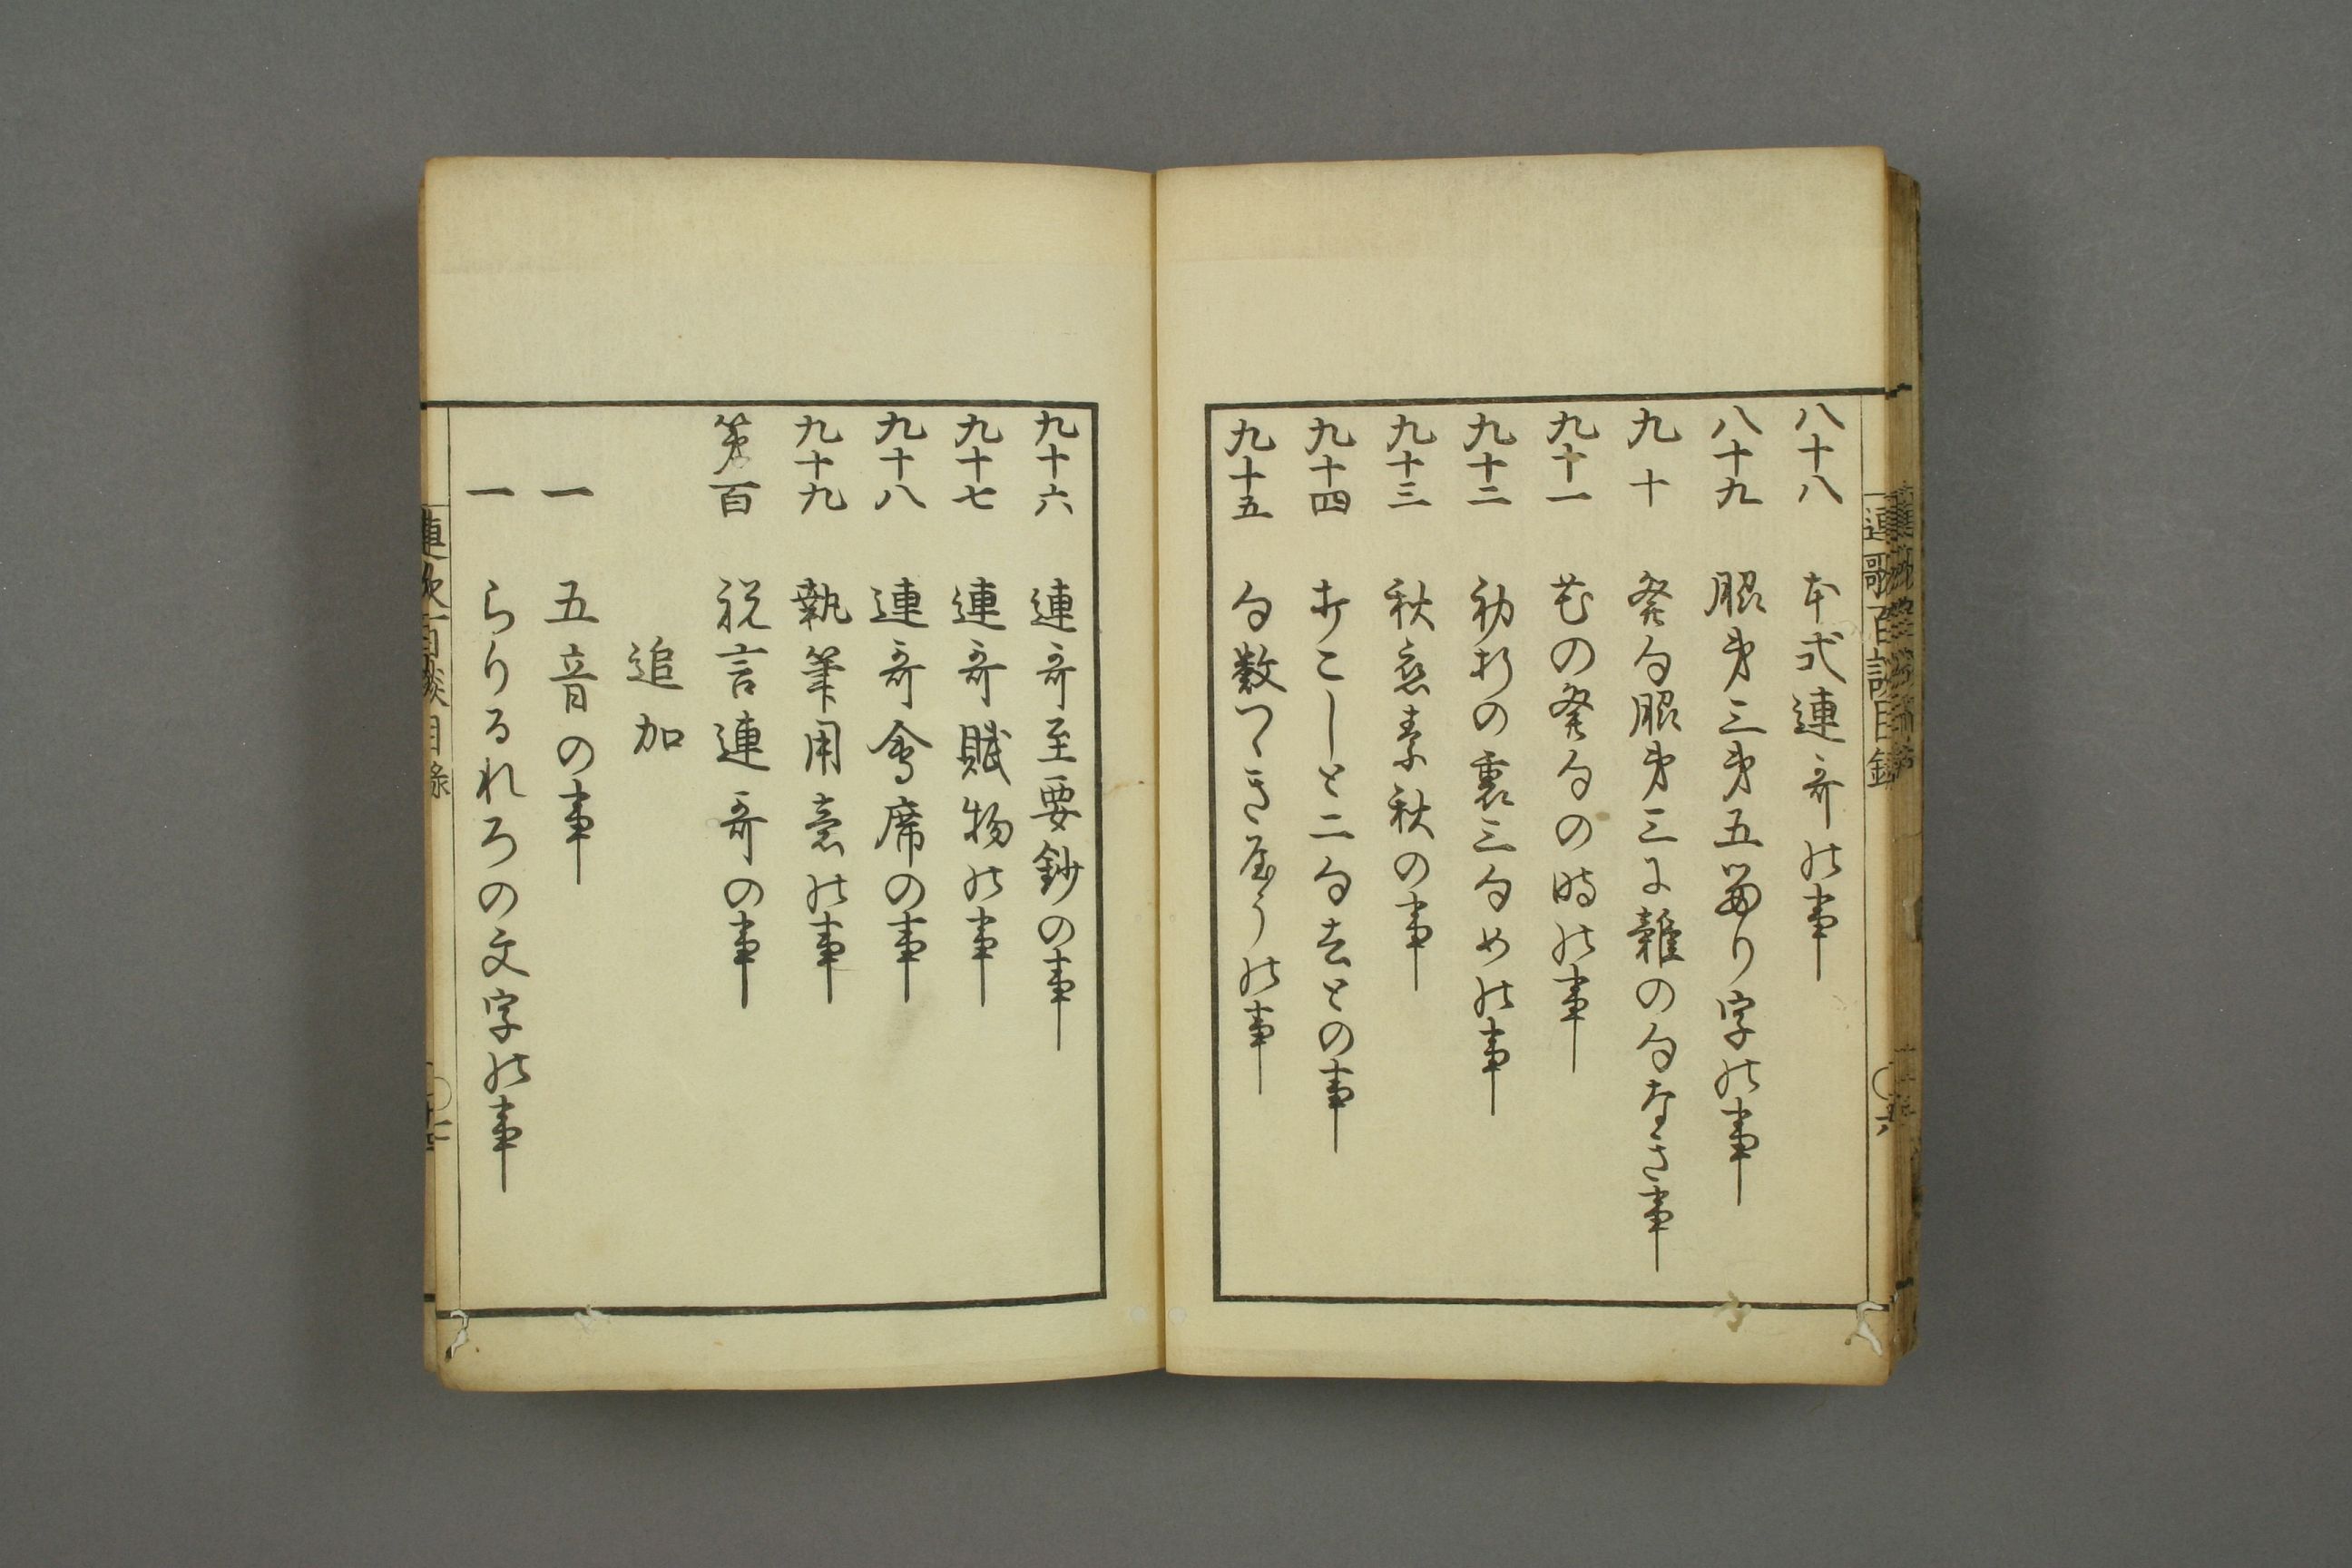 連歌百談目録
六
八十八 本式連哥の事
八十九 脇第三第五留り字の事
九十 発句脇第三に雑の句なき事
九十一 花の発句の時の事
九十二 初折の裏三句めの事
九十三 秋恋素秋の事
九十四 折こしと二句去との事
九十五 句数つゝき やうの事
九十六 連哥至要鈔の事
九十七 連哥賦物の事
九十八 連哥會席の事
九十九 執筆用意の事
第百 祝言連哥の事
追加
一 五音の事
一 らりるれろの文字の事